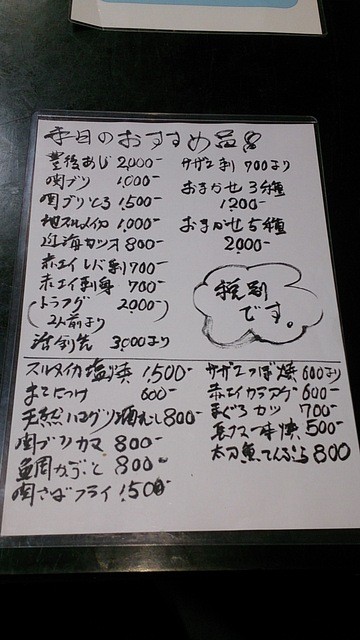 本日のおすすめ品
豊後あじ 2,000-
関ブリ 1,000-
関ブリとろ 1,500-
スルメイカ 1,000-
近海カツオ 800-
赤エイレバ刺 700-
赤エイ刺身 700-
(トラフグ 2,000-)
(2人前より)
3,000より
サザエ刺 700より
おまかせ3種
1,200-
おまかせ5種
2,000-
税別
です。
スルメイカ塩焼 1,500-
600-
天然ハマグリ酒むし 800-
関ブリカマ 800-
800-
関さばフライ 1,500
サザエつぼ焼 600より
赤エイカラアゲ 600-
まぐろカツ 700-
500-
太刀魚てんぷら 800